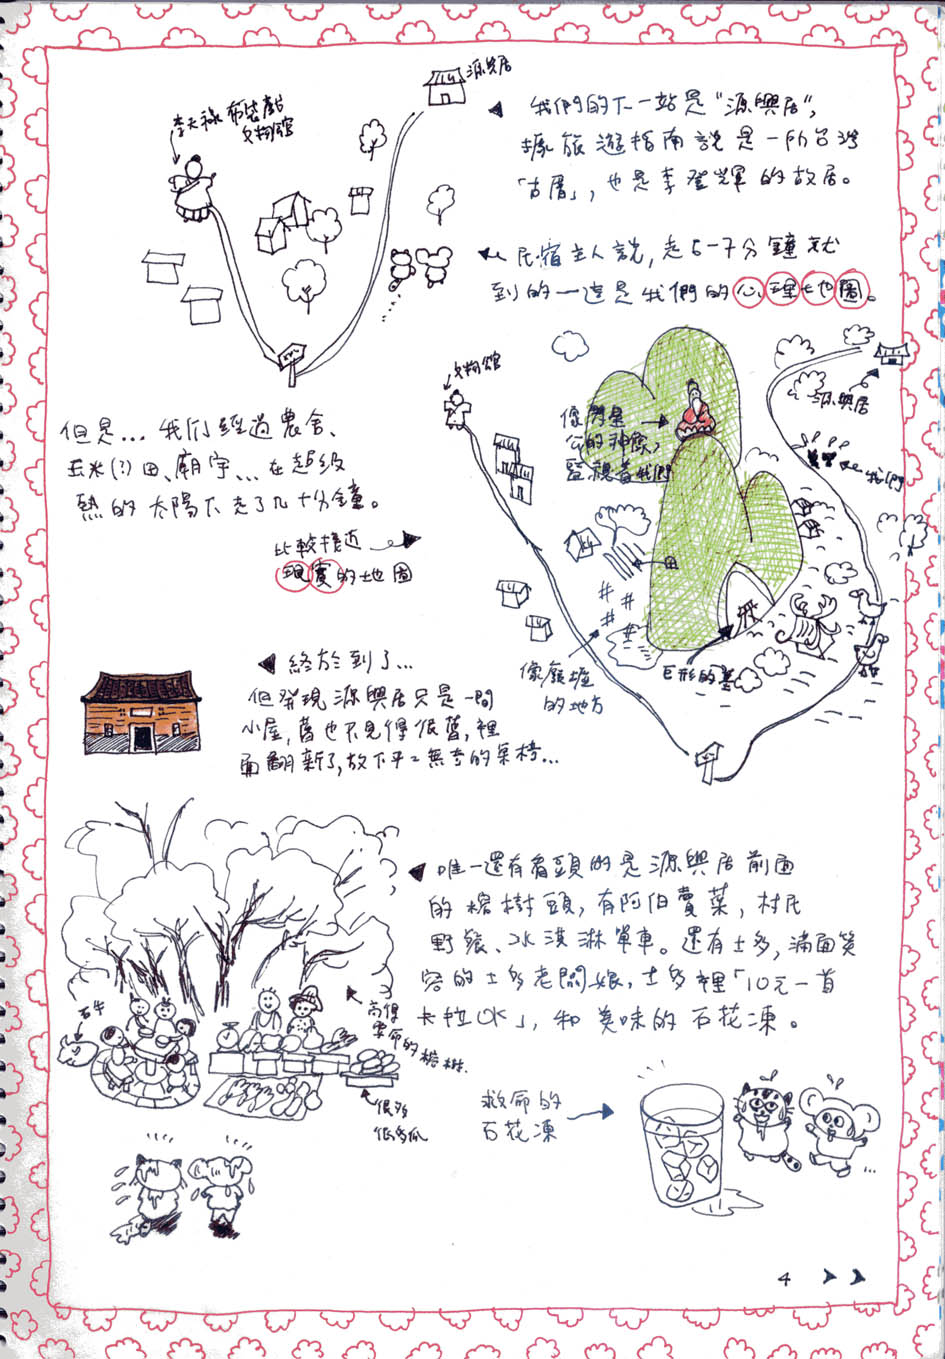 李天祿布袋戲
文物館
源興居
我們的下一站是"源興居",
據旅遊指南說是一所台灣
「古厝」,也是李登輝的故居。
民宿主人說,走5-7分鐘就
到的一這是我們的心理地圖。
但是...我们經過農舍、
玉米(?)田、廟宇...在超級
熱的太陽下走了几十分鐘。
比較接近
現實的地圖
文物館
像門星
公的神像,
監視着我們
源興居
我們
像廢墟
的地方
巨形的墓
終於到了...
但發現源興居只是一間
小屋,舊也不見得很舊,裡
面翻新了,放下平平無奇的桌椅...
唯一還有看頭的是源興居前面
的榕樹頭,有阿伯賣菜,村民
野餐、冰淇淋單車。還有士多,滿面笑
容的士多老闆娘,士多裡「10元一首
卡拉OK」,和美味的石花凍。
石牛
高得
要命的
榕樹.
很多
很多瓜
救命的
石花凍
...
4